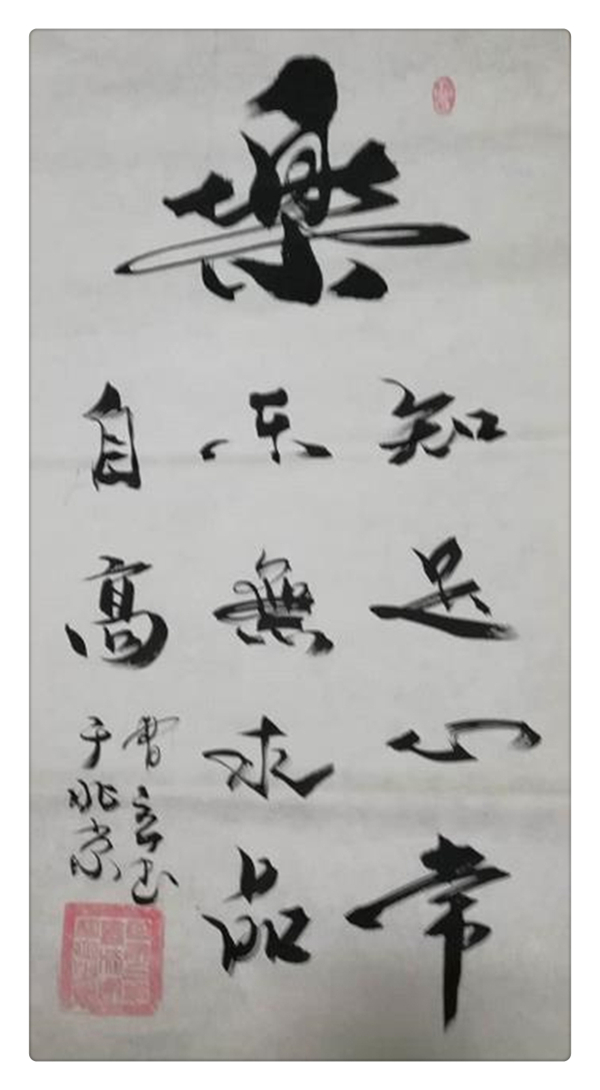 樂
知足心常
乐無求品
自高
曹立玉
于北京